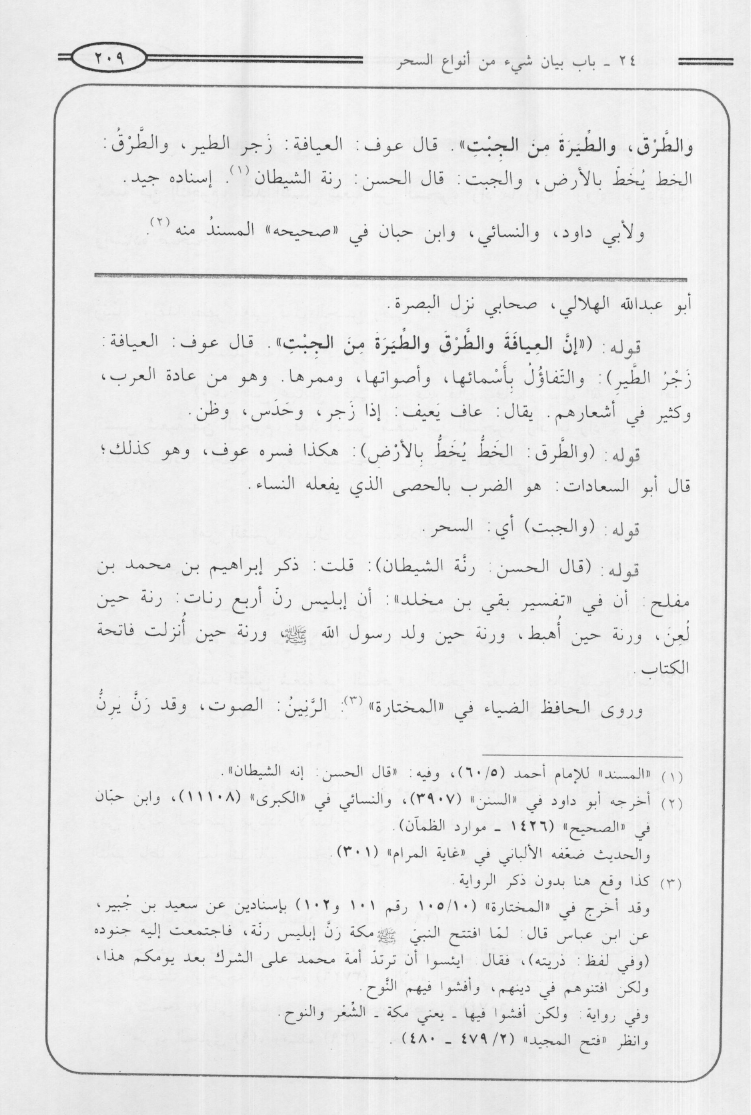 ٢٤ ـ باب بيان شيء من أنواع السحر
٢٠٩
والطَّرْقَ، والطِّيَرَةَ مِنَ الجِبْتِ». قال عوف: العيافة: زَجر الطير، والطَّرْقُ:
الخط يُخَطّ بالأرض، والجبت: قال الحسن: رنة الشيطان(١). إسناده جيد.
ولأبي داود، والنسائي، وابن حبان في «صحيحه» المسندُ منه(٢).
أبو عبدالله الهلالي، صحابي نزل البصرة.
قوله: («إنَّ العِيافَةَ والطَّرْقَ والطِّيَرَةَ مِنَ الجِبْتِ». قال عوف: العيافة:
زَجْرُ الطَّيرِ): والتّفاؤُلُ بِأَسْمائها، وأصواتها، وممرها. وهو من عادة العرب،
وكثير في أشعارهم. يقال: عاف يَعيف: إذا زَجر، وحَدَس، وظن.
قوله: (والطَّرق: الخَطُّ يُخَطُّ بِالأرْضِ): هكذا فسره عوف، وهو كذلك؛
قال أبو السعادات: هو الضرب بالحصى الذي يفعله النساء.
قوله: (والجبت) أي: السحر.
قوله: (قال الحسن: رنَّة الشيطان): قلت: ذكر إبراهيم بن محمد بن
مفلح: أن في «تفسير بقي بن مخلد»: أن إبليس رنّ أربع رنات: رنة حين
لُعِنَ، ورنة حين أُهبط، ورنة حين ولد رسول الله ﷺ، ورنة حين أُنزلت فاتحة
الكتاب.
وروى الحافظ الضياء في «المختارة»(٣): الرَّنِينُ: الصوت، وقد رَنَّ يَرِنُّ
(١) «المسند» للإمام أحمد (٦٠/٥)، وفيه: «قال الحسن: إنه الشيطان».
(٢) أخرجه أبو داود في «السنن» (٣٩٠٧)، والنسائي في «الكبرى» (١١١٠٨)، وابن حبّان
في «الصحيح» (١٤٢٦ ـ موارد الظمآن).
والحديث ضعّفه الألباني في «غاية المرام» (٣٠١).
(٣) كذا وقع هنا بدون ذكر الرواية.
وقد أخرج في «المختارة» (١٠٥/١٠ رقم ١٠١ و١٠٢) بإسنادين عن سعيد بن جُبير،
عن ابن عباس قال: لمّا افتتح النبيّ ﷺ مكة رَنَّ إبليس رنّة، فاجتمعت إليه جنوده
(وفي لفظ: ذريته)، فقال: ايئسوا أن ترتدّ أمة محمد على الشرك بعد يومكم هذا،
ولكن افتنوهم في دينهم، وأفشوا فيهم النَّوح.
وفي رواية: ولكن أفشوا فيها ـ يعني مكة ـ الشِّعْر والنوح.
وانظر «فتح المجيد» (٤٧٩/٢ ـ ٤٨٠).